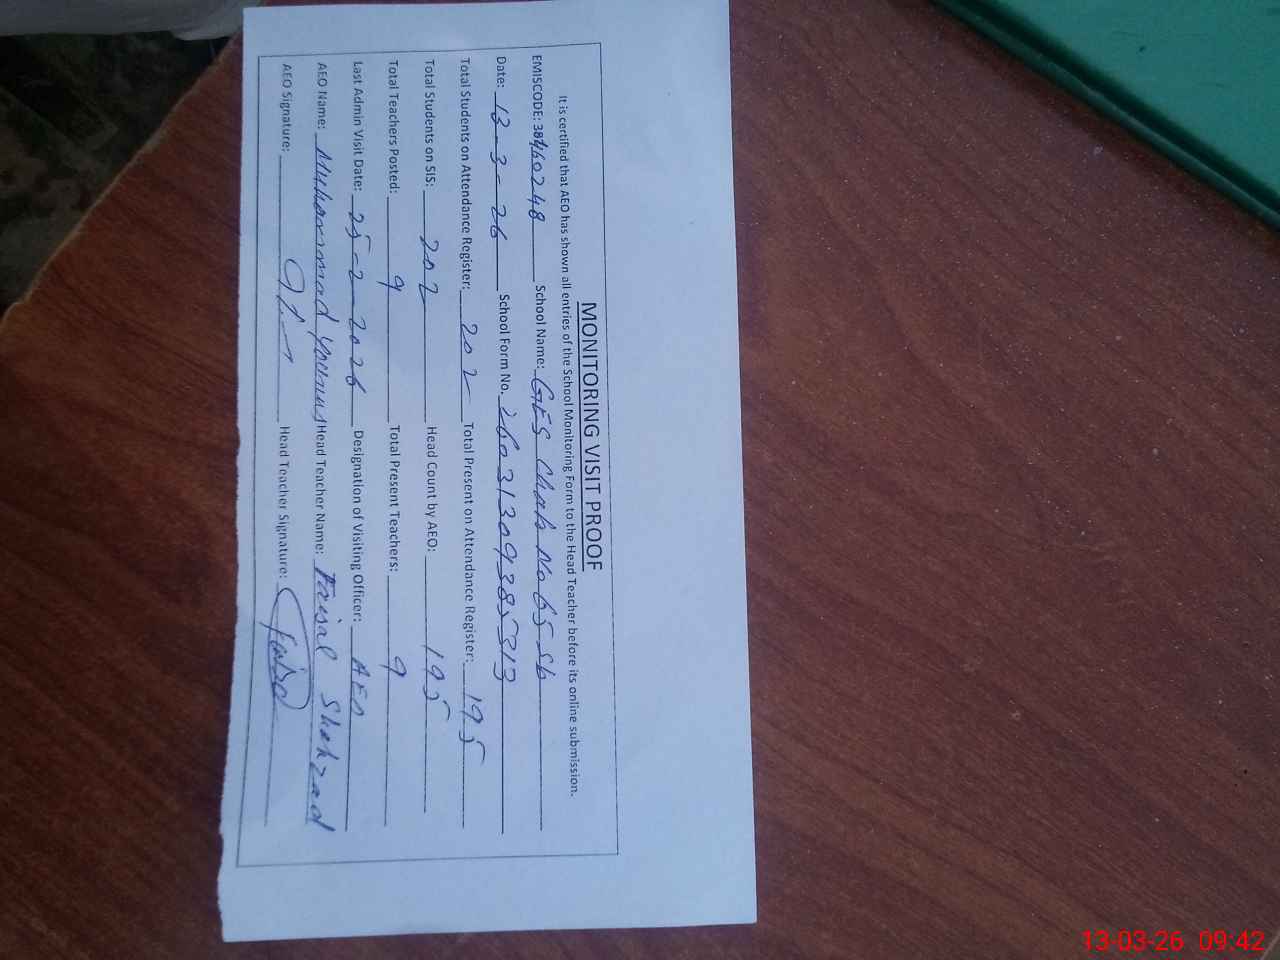 MONITORING VISIT PROOF
It is certified that AEO has shown all entries of the School Monitoring Form to the Head Teacher before its online submission.
EMISCODE: 38460248 School Name: GES Chak No 65 Sb
Date: 13-3-26 School Form No. 26031309385313
Total Students on Attendance Register: 202 Total Present on Attendance Register: 195
Total Students on SIS: 202 Head Count by AEO: 195
Total Teachers Posted: 9 Total Present Teachers: 9
Last Admin Visit Date: 25-2-2026 Designation of Visiting Officer: AEO
AEO Name: Muhammad Younus Head Teacher Name: Faisal Shahzad
AEO Signature: Head Teacher Signature: Faisal
13-03-26 09:42